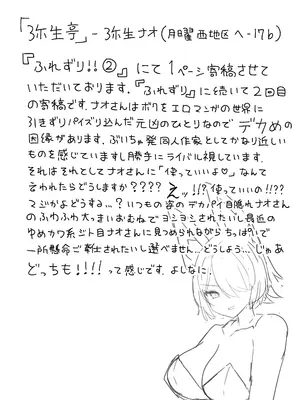 「弥生亭」-弥生ナオ(月曜 西地区 へ-17b)
『ふれずり!!②』にて1ページ寄稿させて
いただいております.『ふれずり』に続いて2回目
の寄稿です.ナオさんはボクをエロマンガの世界に
引きずりパイズリ込んだ元凶のひとりなのでデカめの
因縁があります.ぶいちゅ発同人作家としてかなり近しい
ものを感じていますし勝手にライバル視しています.
それはそれとしてナオさんに「使っていいよ♡」なんて
言われたらどうしますか???? えッ!!?使っていいの!!??
マジかよどうするぅ…?いつもの姿のデカパイ目隠れナオさん
のふわふわ大っきいおむねでヨシヨシされたいし最近の
ゆめカワ系ジト目ナオさんに見つめられながらちっぱいで
一所懸命ご奉仕されたいし選べません…どうしよう…じゃあ
どっちも!!!!って感じです.よしなに.